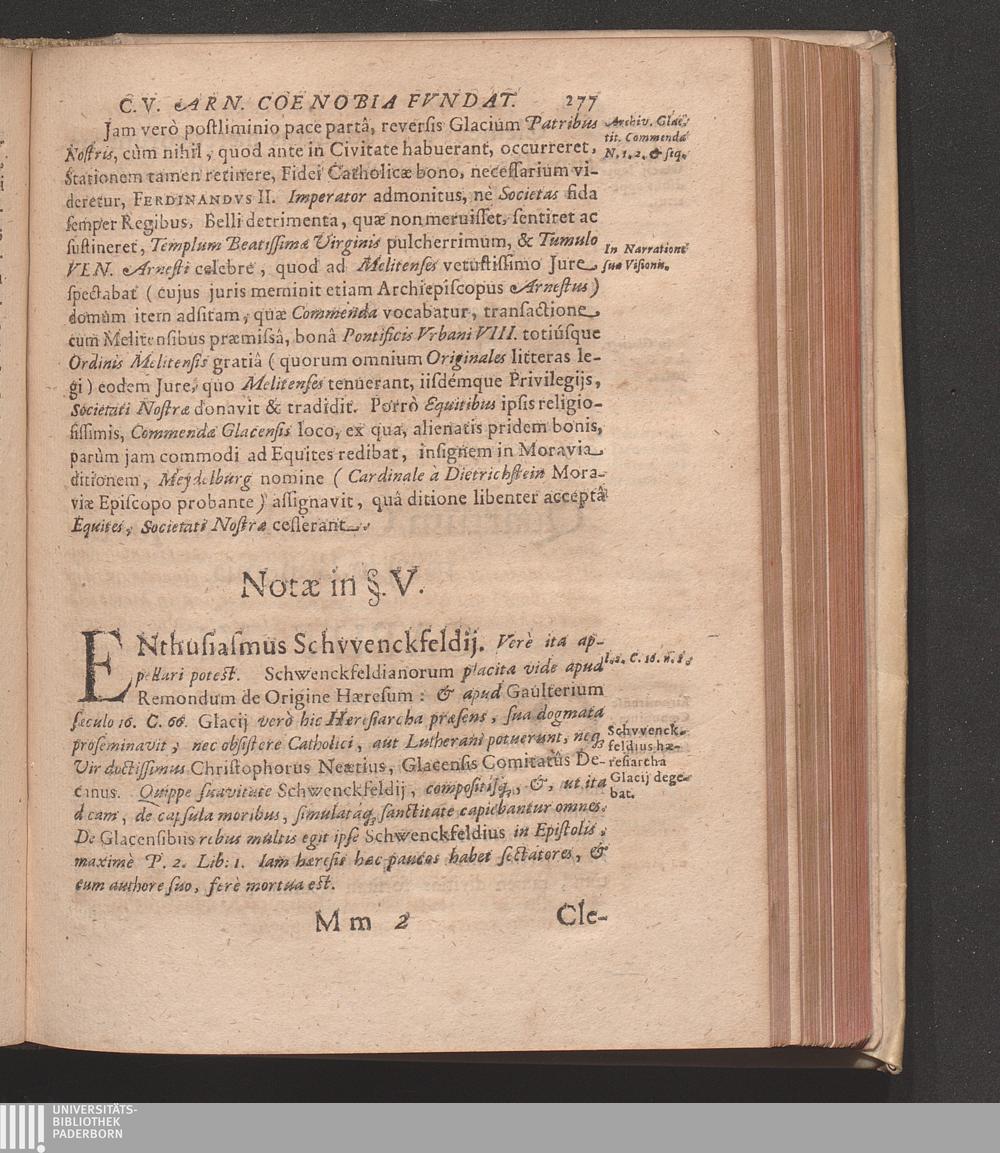 C.V. ARN. COENOBIA FVNDAT. 277
Jam verò poſtliminio pace partâ, reverſis Glacium Patribus
Noſtris, cùm nihil, quod ante in Civitate habuerant, occurreret,
Stationem tamen retinere, Fidei Catholicæ bono, neceſſarium vi-
deretur, FERDINANDVS II. Imperator admonitus, nè Societas fida
ſemper Regibus, Belli detrimenta, quæ non meruiſſet, ſentiret ac
ſuſtineret, Templum Beatiſſimæ Virginis pulcherrimum, & Tumulo
VEN. Arneſti celebre, quod ad Melitenſes vetuſtiſſimo Jure
ſpectabat (cujus juris meminit etiam Archiepiſcopus Arneſtus)
domum item adſitam, quæ Commenda vocabatur, transactione
cum Melitenſibus præmiſsâ, bonâ Pontificis Vrbani VIII. totiúsque
Ordinis Melitenſis gratiâ (quorum omnium Originales litteras le-
gi) eodem Jure, quo Melitenſes tenuerant, iiſdémque Privilegijs,
Societati Noſtræ donavit & tradidit. Porrò Equitibus ipſis religio-
ſiſſimis, Commendæ Glacenſis loco, ex qua, alienatis pridem bonis,
parùm jam commodi ad Equites redibat, inſignem in Moravia
ditionem, Meydelburg nomine (Cardinale à Dietrichſtein Mora-
viæ Epiſcopo probante) aſſignavit, quâ ditione libenter acceptâ
Equites, Societati Noſtræ ceſſerant.
Archiv. Glac.
tit. Commenda
N. 1. 2. & ſiq.
In Narratione
ſuæ Viſionis.
Notæ in §. V.
ENthuſiaſmus Schvvenckfeldij. Verè ita ap-
pellari poteſt. Schwenckfeldianorum placita vide apud
Remondum de Origine Hæreſum: & apud Gaulterium
ſæculo 16. C. 66. Glacij verò hic Hæreſiarcha præſens, ſua dogmata
proſeminavit, nec obſiſtere Catholici, aut Lutherani potuerunt, neq₃
Vir doctiſſimus Chriſtophorus Neætius, Glacenſis Comitatûs De-
canus. Quippe ſuavitate Schwenckfeldij, compoſitiſq₃, &, ut ita
dicam, de capſula moribus, ſimulatáq₃ ſanctitate capiebantur omnes.
De Glacenſibus rebus multis egit ipſe Schwenckfeldius in Epiſtolis,
maximè P. 2. Lib: 1. Iam hæreſis hæc paucos habet ſectatores, &
cum authore ſuo, ferè mortua eſt.
l. 2. C. 16. n. 8.
Schvvenck-
feldius hæ-
reſiarcha
Glacij dege-
bat.
M m 2 Cle-
UNIVERSITÄTS-
BIBLIOTHEK
PADERBORN